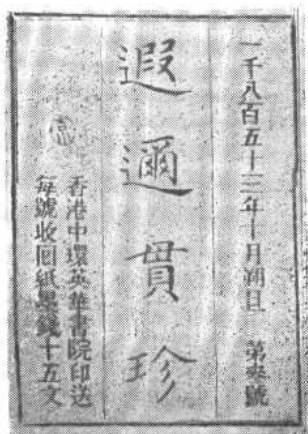 一千八百五十三年十月朔旦 第叁號
遐邇貫珍
香港中環英華書院印送
每號收回紙墨錢十五文